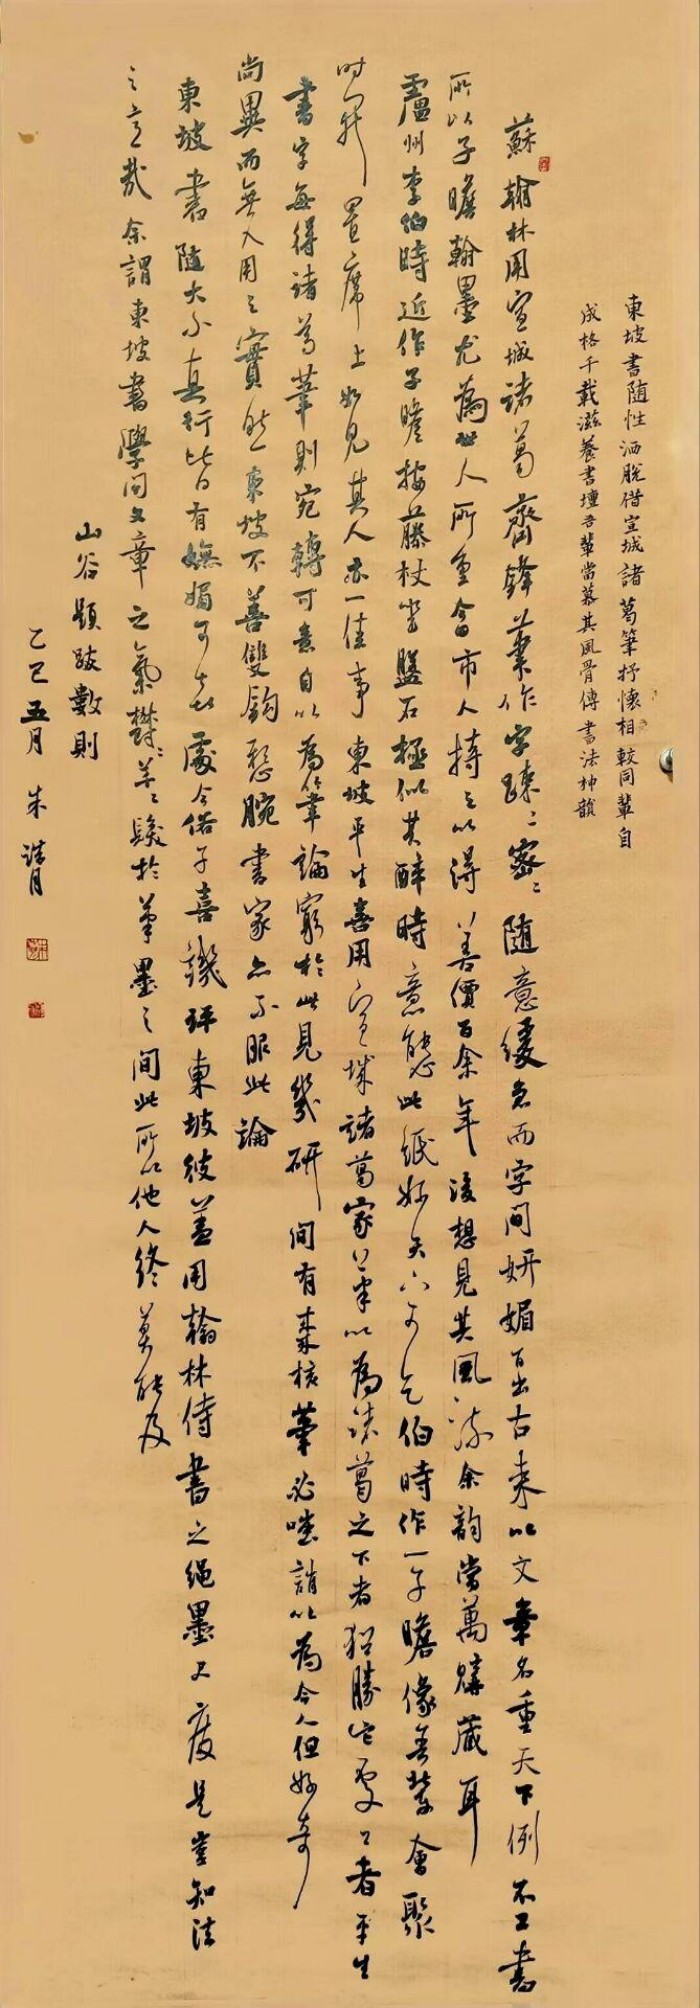 東坡書隨性洒脫借宣城諸葛筆抒懷相較同輩自
成格千載滋養書壇吾輩當慕其風骨傳書法神韻
蘇翰林用宣城諸葛齊鋒筆作字疎疎密密隨意緩急而字間妍媚百出古來以文章名重天下例不工書
所以子瞻翰墨尤為世人所重今市人持之以得善價百余年後想見其風流余韵當萬購藏耳
廬州李伯時近作子瞻按藤杖坐盤石極似其醉時意態此紙妙天下可乞伯時作一子瞻像吾輩會聚
時開置席上如見其人亦一佳事東坡平生喜用宣城諸葛家筆以為諸葛之下者猶勝他處工者平生
書字每得諸葛筆則宛轉可意自以為筆論窮於此見幾研間有棗核筆必嗤誚以為今人但好奇
尚異而無入用之實然東坡不善雙鈎懸腕書家亦不服此論
東坡書隨大小真行皆有嫵媚可喜處今俗子喜譏評東坡彼蓋用翰林侍書之繩墨尺度是豈知法
之意哉余謂東坡書學問文章之氣鬱鬱芊芊發於筆墨之間此所以他人終莫能及
山谷題跋數則
乙巳五月 朱